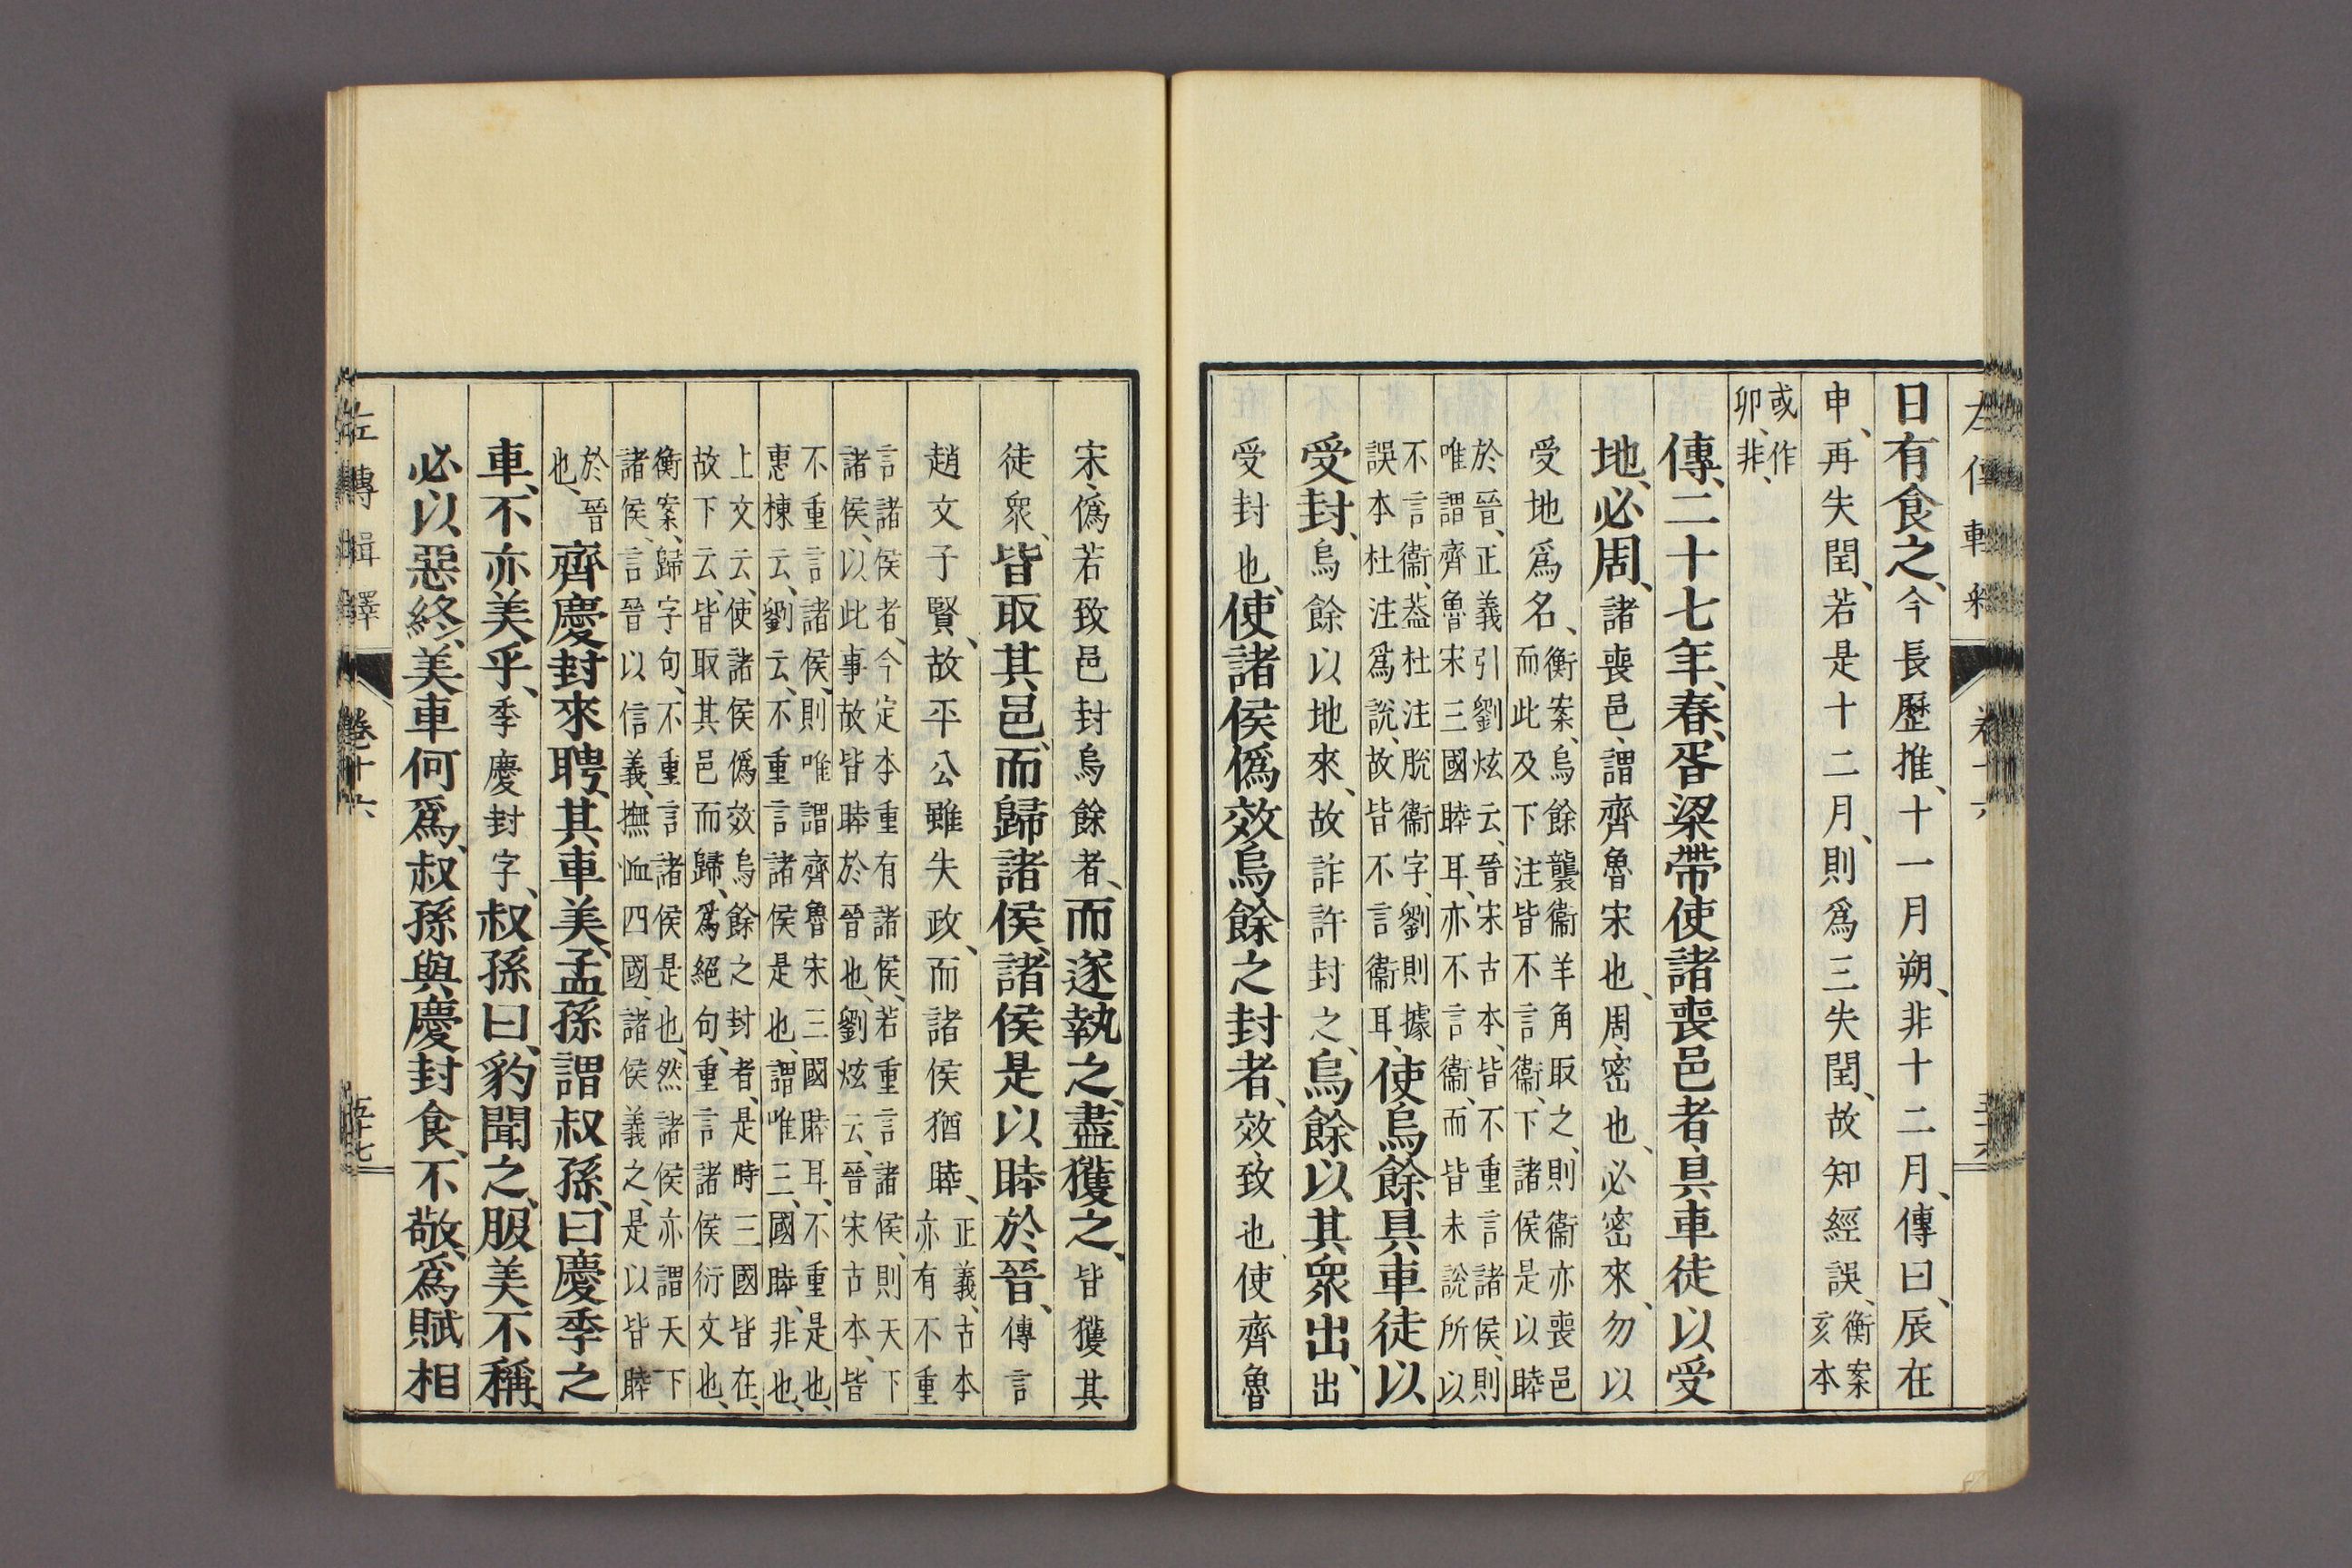 日有食之、今長歷推、十一月朔、非十二月、傳曰、辰在
申、再失閏、若是十二月、則爲三失閏、故知經誤、衡案
亥本
或作
卯、非、
傳、二十七年、春、胥梁帶使諸喪邑者、具車徒以受
地、必周、諸喪邑、謂齊魯宋也、周、密也、必密來、勿以
受地爲名、衡案、烏餘襲衞羊角取之、則衞亦喪邑
而此及下注皆不言衞、下諸侯是以睦
於晉、正義引劉炫云、晉宋古本、皆不重言諸侯、則
唯謂齊魯宋三國睦耳、亦不言衞、而皆未說所以
不言衞、葢杜注脫衞字、劉則據
誤本杜注爲說、故皆不言衞耳、使烏餘具車徒以
受封、烏餘以地來、故詐許封之、烏餘以其眾出、出
受封也、使諸侯僞效烏餘之封者、效、致也、使齊魯
宋、僞若致邑封烏餘者、而遂執之、盡獲之、皆獲其
徒眾、皆取其邑、而歸諸侯、諸侯是以睦於晉、傳言
趙文子賢、故平公雖失政、而諸侯猶睦、正義、古本
亦有不重
言諸侯者、今定本重有諸侯、若重言諸侯、則天下
諸侯、以此事故皆睦於晉也、劉炫云、晉宋古本、皆
不重言諸侯、則唯謂齊魯宋三國睦耳、不重是也、
惠棟云、劉云、不重言諸侯是也、謂唯三國睦、非也、
上文云、使諸侯僞效烏餘之封者、是時三國皆在、
故下云、皆取其邑而歸、爲絕句、重言諸侯衍文也、
衡案、歸字句、不重言諸侯是也、然諸侯亦謂天下
諸侯、言晉以信義、撫恤四國、諸侯義之、是以皆睦
於晉
也、齊慶封來聘、其車美、孟孫謂叔孫、曰慶季之
車、不亦美乎、季慶封字、叔孫曰、豹聞之、服美不稱、
必以惡終、美車何爲、叔孫與慶封食、不敬、爲賦相
左傳輯釋 卷十六 五十七